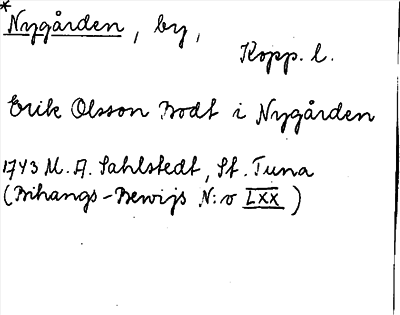 *Nygården, by,
Kopp. l.
Erik Olsson Bodt i Nygården
1743 M. A. Sahlstedt, St. Tuna
(Bihangs-Bewijs N:o LXX)